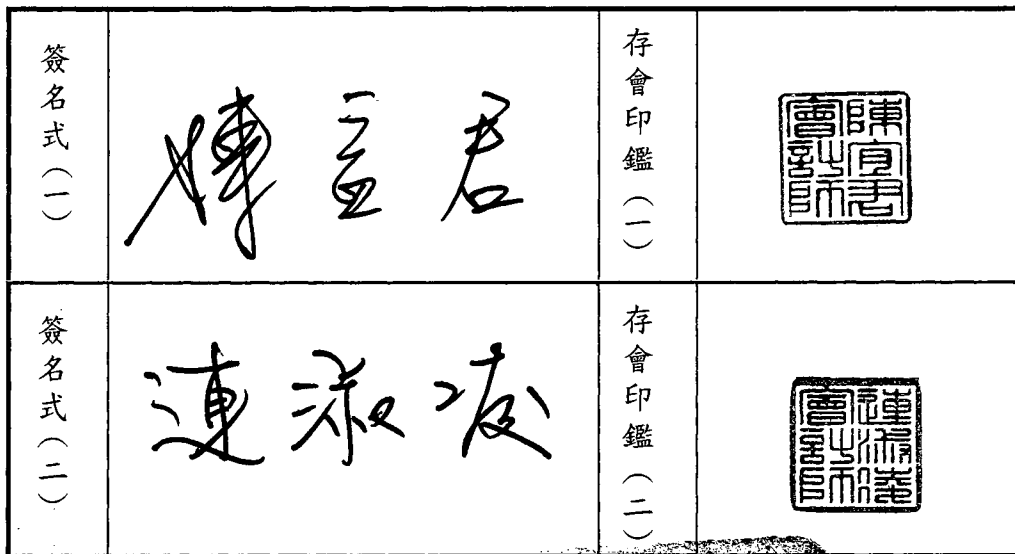 簽名式(一)
陳宜君
存會印鑑(一)
陳宜君會計師
簽名式(二)
連淑凌
存會印鑑(二)
連淑凌會計師